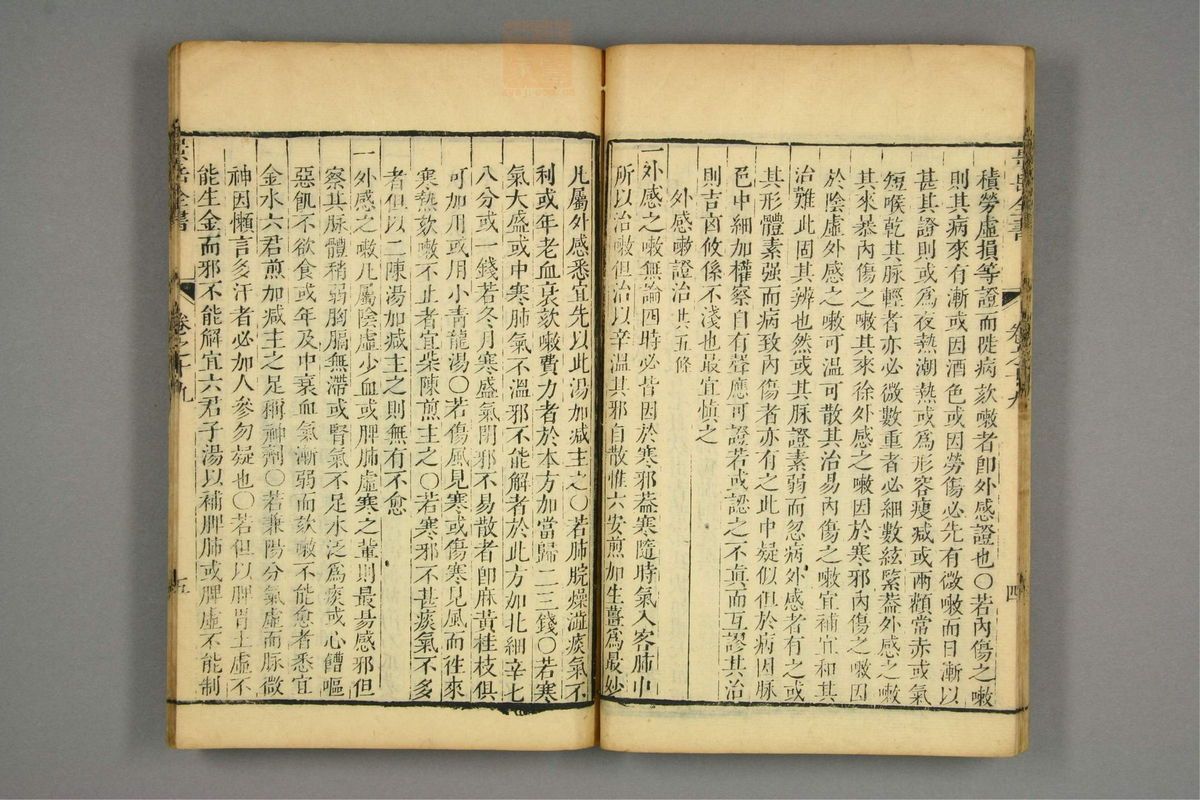 積勞虛損等證而陡病欬嗽者卽外感證也○若內傷之嗽
則其病來有漸或因酒色或因勞傷必先有微嗽而日漸以
甚其證則或爲夜熱潮熱或爲形容瘦減或兩顴常赤或氣
短喉乾其脉輕者亦必微數重者必細數絃緊葢外感之嗽
其來暴內傷之嗽其來徐外感之嗽因於寒邪內傷之嗽因
於陰虛外感之嗽可溫可散其治易內傷之嗽宜補宜和其
治難此固其辨也然或其脉證素弱而忽病外感者有之或
其形體素强而病致內傷者亦有之此中疑似但於病因脉
色中細加權察自有聲應可證若或認之不眞而互謬其治
則吉凶攸係不淺也最宜愼之
外感嗽證治 共五條
一外感之嗽無論四時必皆因於寒邪葢寒隨時氣入客肺中
所以治嗽但治以辛溫其邪自散惟六安煎加生薑爲最妙
凡屬外感悉宜先以此湯加減主之○若肺脘燥澁痰氣不
利或年老血衰欬嗽費力者於本方加當歸二三錢○若寒
氣大盛或中寒肺氣不溫邪不能解者於此方加北細辛七
八分或一錢若冬月寒盛氣閉邪不易散者卽麻黃桂枝俱
可加用或用小靑龍湯○若傷風見寒或傷寒見風而徃來
寒熱欬嗽不止者宜柴陳煎主之○若寒邪不甚痰氣不多
者但以二陳湯加減主之則無有不愈
一外感之嗽凡屬陰虛少血或脾肺虛寒之輩則最易感邪但
察其脉體稍弱胸膈無滯或腎氣不足水泛爲痰或心嘈嘔
惡飢不欲食或年及中衰血氣漸弱而欬嗽不能愈者悉宜
金水六君煎加減主之足稱神劑○若兼陽分氣虛而脉微
神困懶言多汗者必加人參勿疑也○若但以脾胃土虛不
能生金而邪不能解宜六君子湯以補脾肺或脾虛不能制
景岳全書
卷之十九
四
景岳全書
卷之十九
五